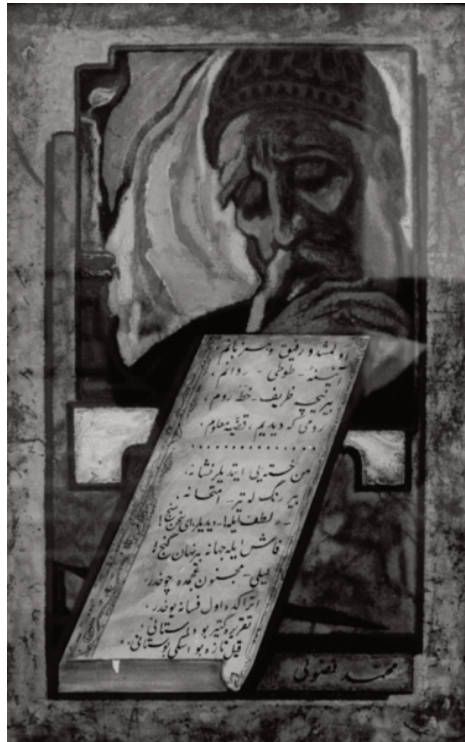 اولمشدو رفیق و همزبانم
آئینه - طوطی - روانم ،
بیر نیچه ظریف - خطه روم ،
رومی که دیدیم ، قضیه معلوم .
. . . . . . . . . . . . .
من خسته یی ایتدیلر نشانه ،
بیر رنگ له تیر - امتحانه .
- لطف ایله! - دیدیلر، ای سخن سنج!
فاش ایله جهانه بیر نهان گنج!
لیلی - مجنون عجمده چوخدر ،
اتراکده اول فسانه یوخدر .
تقریره گتیر بو داستانی ،
قیل تازه بو اسکی بوستانی .
محمد فضولی